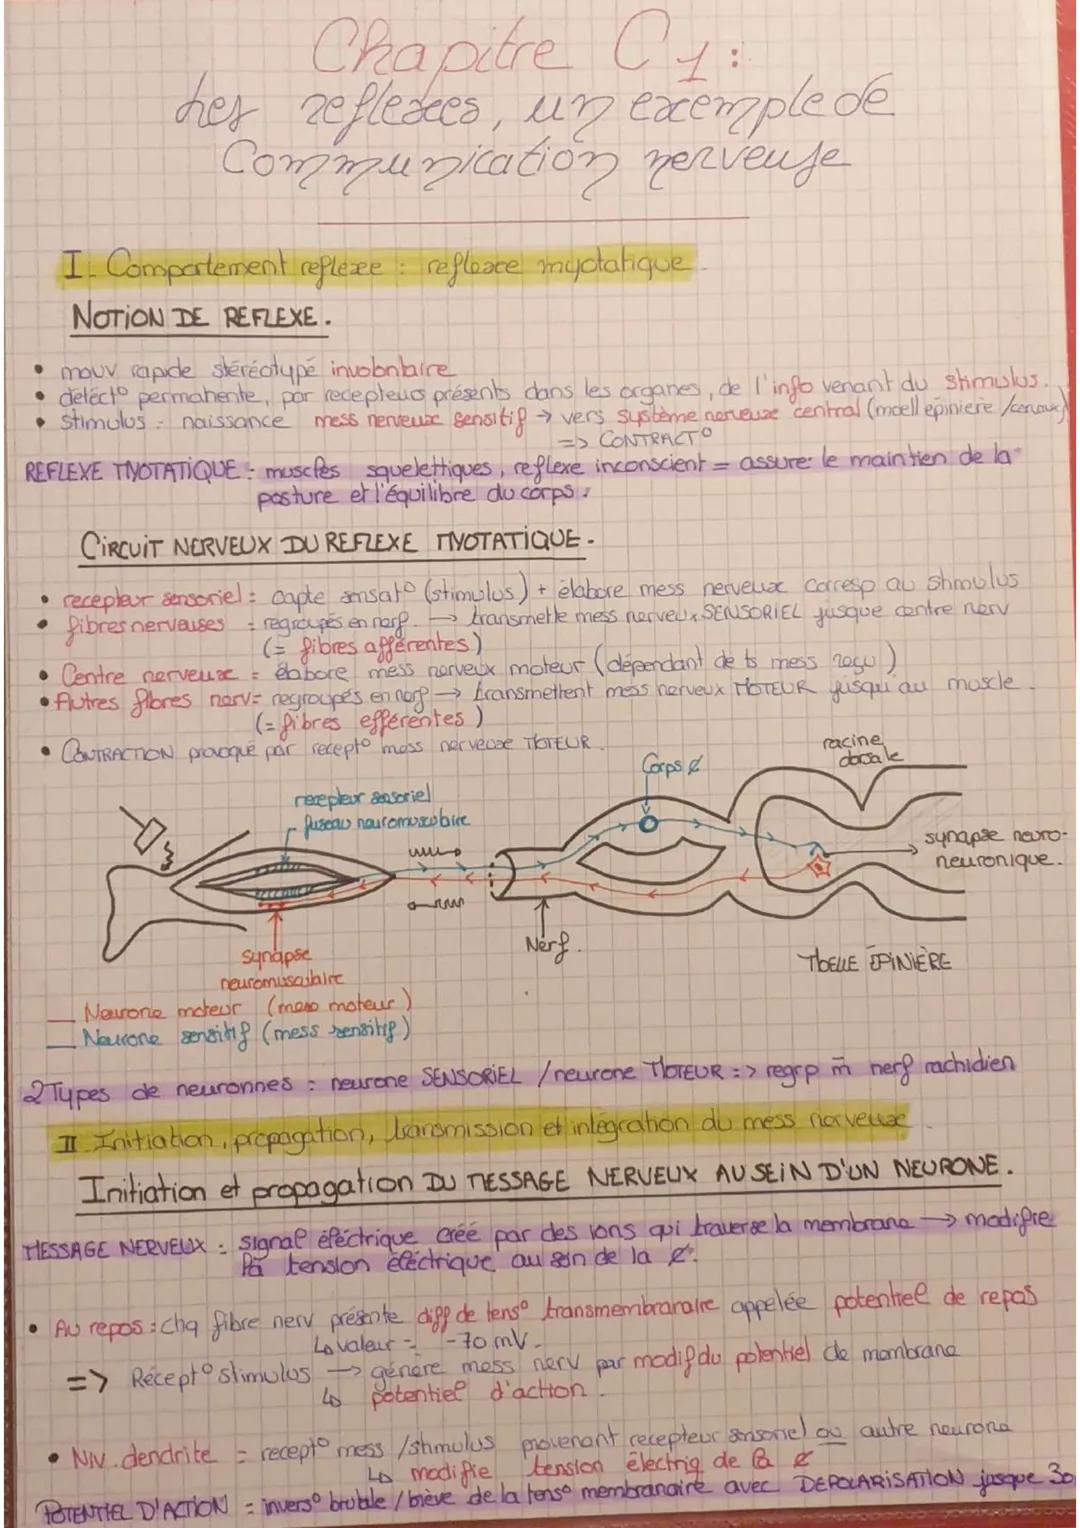 Chapitre C1 :
Les reflexes, un exemple de
Communication nerveuse
I - Comportement reflexe : reflexe myotatique.
NOTION DE REFLEXE.
• mouv rapide stéréotypé involontaire
• détect° permanente, par recepteurs présents dans les organes, de l'info venant du stimulus.
• Stimulus = naissance mess nerveux sensitif → vers système nerveux central (moell epiniere / cerveau)
=> CONTRACT°
REFLEXE MYOTATIQUE = muscles squelettiques, reflexe inconscient = assurer le maintien de la
posture et l'équilibre du corps.
CIRCUIT NERVEUX DU REFLEXE MYOTATIQUE.
• recepteur sensoriel = capte sensat° (stimulus) + élabore mess nerveux corresp au stimulus
• fibres nerveuses = regroupés en nerf. → transmette mess nerveux SENSORIEL jusque centre nerv
(= fibres afférentes)
• Centre nerveux = élabore mess nerveux moteur (dépendant de ts mess reçu)
• Autres fibres nerv = regroupés en nerf → transmettent mess nerveux MOTEUR jusqu'au muscle.
(= fibres efférentes)
• CONTRACTION provoqué par recept° mess nerveuse MOTEUR.
racine
dorsale
Corps ¢
recepteur sensoriel
fuseau neuromusculaire
synapse neuro-
neuronique.
synapse
neuromusculaire
Nerf.
MOELLE ÉPINIÈRE
__ Neurone moteur (mess moteur)
__ Neurone sensitif (mess sensitif)
2 Types de neuronnes : neurone SENSORIEL / neurone MOTEUR => regrp m̄ nerf rachidien
II Initiation, propagation, transmission et intégration du mess nerveux.
Initiation et propagation DU MESSAGE NERVEUX AU SEIN D'UN NEURONE.
MESSAGE NERVEUX = signal éléctrique créé par des ions qui traverse la membrane → modifie
la tension éléctrique au sein de la ¢.
• Au repos : chq fibre nerv présente diff de tens° transmembranaire appelée potentiel de repos
↳ valeur = -70 mV.
=> Récept° stimulus → génère mess nerv par modif du potentiel de membrane
↳ potentiel d'action.
• Niv. dendrite = recept° mess / stimulus provenant recepteur sensoriel ou autre neurone
↳ modifie tension électriq de la ¢
POTENTIEL D'ACTION = invers° brutale / brève de la tens° membranaire avec DEPOLARISATION jusque 30